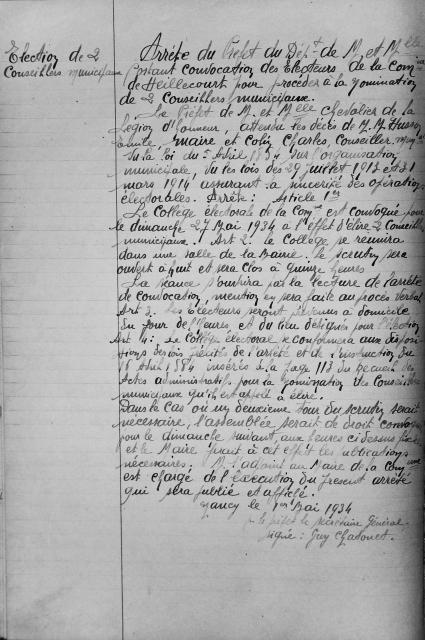 Election de 2
Conseillers municipaux
Arrêté du Préfet du Dépt de M. et Mlle
Portant convocation des Electeurs de la Comne
de Heillecourt pour procéder à la nomination
de 2 Conseillers municipaux.
Le Préfet de M. et Mlle chevalier de la
Légion d'honneur, attendu les décès de M.M. Husson
Emile, maire et Colin Charles, Conseiller, mpal
Vu la loi du 5 Avril 1884 sur l'organisation
municipale, vu les lois des 29 juillet 1913 et 31
mars 1914 assurant la sincérité des opérations
électorales. Arrête: Article 1er
Le Collège électorale de la Comne est convoqué pour
le dimanche 27 Mai 1934 à l'effet d'élire 2 Conseillers
municipaux. Art 2: le Collège se réunira
dans une salle de la Mairie. le scrutin sera
ouvert à huit et sera clos à quinze heures
La séance s'ouvrira par la lecture de l'arrêté
de convocation, mention en sera faite au procès verbal
Art 3. Les Electeurs seront prévenus à domicile
du jour de l'heures, et du lieu désignés pour l'élection
Art 4: Le Collège électoral se conformera aux disposi-
tions des lois précités de l'arrêté et de l'instruction du
16 Avril 1884 insérés à la page 113 du recueil des
Actes administratifs pour la nomination des Conseillers
municipaux qu'il est appelé à élire.
Dans le cas où un deuxième tour du scrutin serait
nécessaire, l'assemblée serait de droit convoquée
pour le dimanche suivant, aux heures ci dessus fixées
et le Maire ferait à cet effet les publications
nécessaires: M. l'adjoint au Maire de la Comune
est chargé de l'exécution du présent arrêté
qui sera publié et affiché.
Nancy le 1er Mai 1934
le préfet le secrétaire Général
signé: Guy Chadouet.